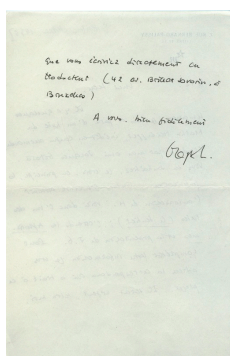 que vous écriviez directement au
traducteur (42 av. Brillat Savarin, à
Bruxelles)
A vous, bien fidèlement